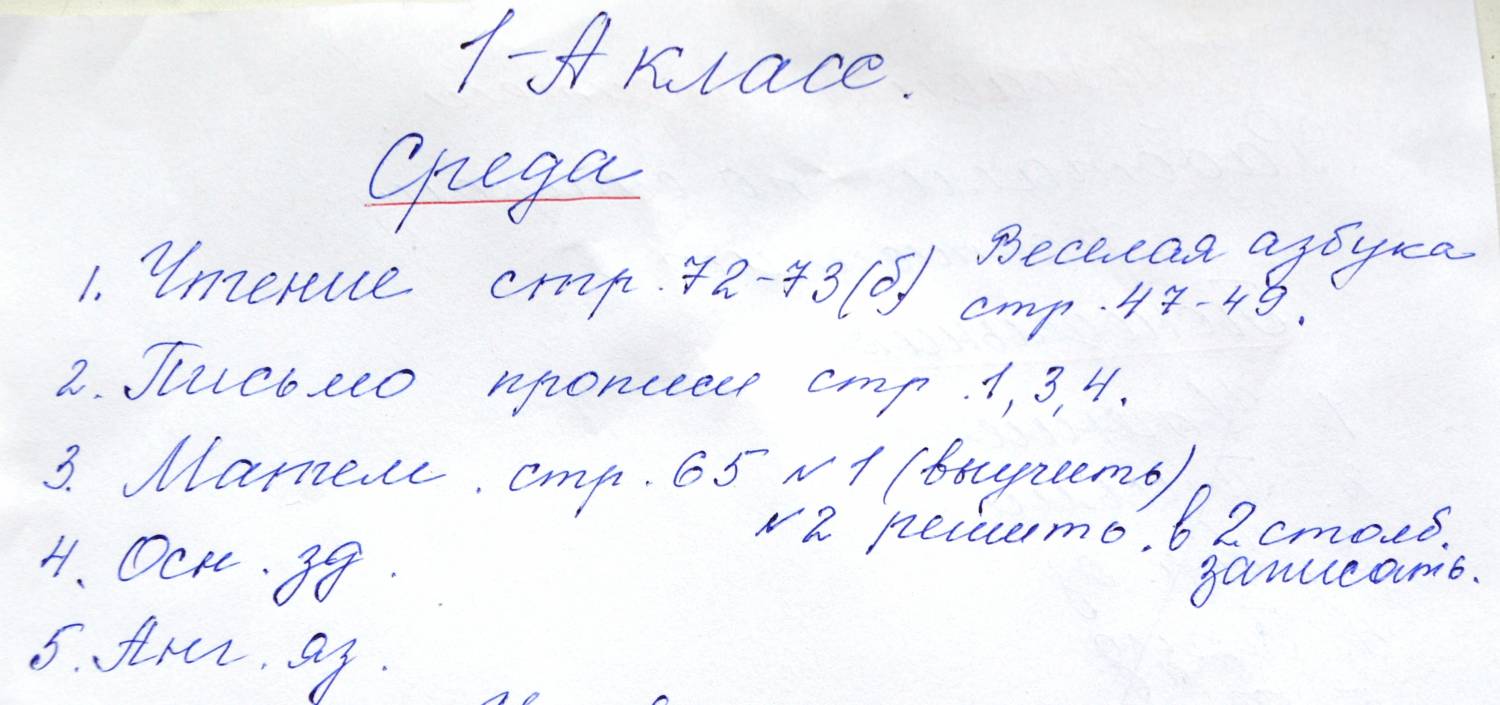 1-А класс.
Среда
1. Чтение стр. 72-73(б) Веселая азбука
стр. 47-49.
2. Письмо прописи стр. 1, 3, 4.
3. Матем. стр. 65 №1 (выучить)
№2 решить. в 2 столб.
записать.
4. Осн. зд.
5. Анг. яз.